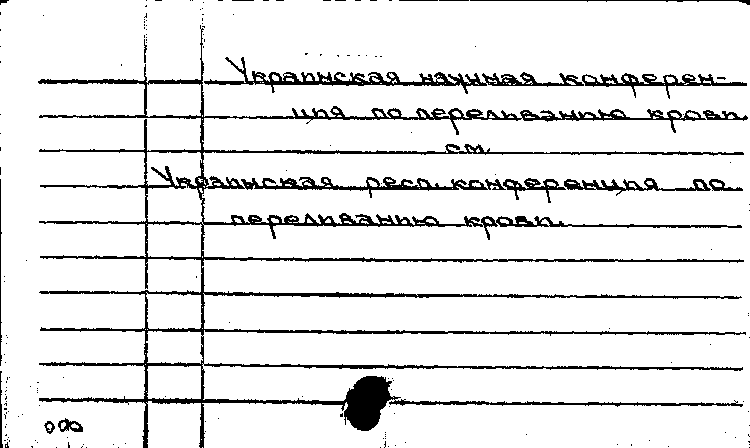 Украинская научная конферен-
ция по переливанию крови
см.
Украинская респ. конференция по
переливанию крови.